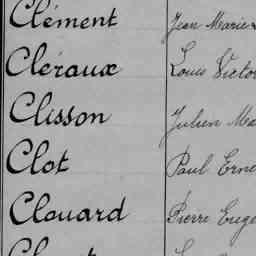 Clément Jean Marie
Cléraux Louis Victor
Clisson Julien Ma
Clot Paul Erne
Clouard Pierre Euge